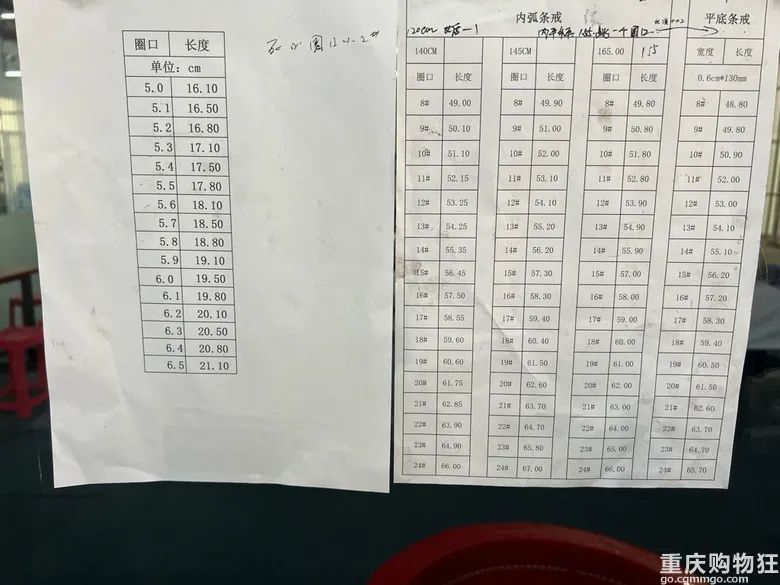 圈口 长度
单位：cm
5.0 16.10
5.1 16.50
5.2 16.80
5.3 17.10
5.4 17.50
5.5 17.80
5.6 18.10
5.7 18.50
5.8 18.80
5.9 19.10
6.0 19.50
6.1 19.80
6.2 20.10
6.3 20.50
6.4 20.80
6.5 21.10
内弧条戒 平底条戒
140CM 145CM 165.00 155 宽度 长度
圈口 长度 圈口 长度 圈口 长度 0.6cm*130mm
8# 49.00 8# 49.90 8# 49.80 8# 48.80
9# 50.10 9# 51.00 9# 50.80 9# 49.80
10# 51.10 10# 52.00 10# 51.80 10# 50.90
11# 52.15 11# 53.10 11# 52.80 11# 52.00
12# 53.25 12# 54.10 12# 53.90 12# 53.00
13# 54.25 13# 55.20 13# 54.90 13# 54.10
14# 55.35 14# 56.20 14# 55.90 14# 55.10
15# 56.45 15# 57.30 15# 57.00 15# 56.20
16# 57.50 16# 58.30 16# 58.00 16# 57.20
17# 58.55 17# 59.40 17# 59.00 17# 58.30
18# 59.60 18# 60.40 18# 60.00 18# 59.40
19# 60.60 19# 61.50 19# 61.00 19# 60.50
20# 61.75 20# 62.60 20# 62.00 20# 61.50
21# 62.85 21# 63.70 21# 63.00 21# 62.60
22# 63.90 22# 64.70 22# 64.00 22# 63.70
23# 64.90 23# 65.80 23# 65.00 23# 64.70
24# 66.00 24# 67.00 24# 66.00 24# 65.70
重庆购物狂
go.cqmmgo.com